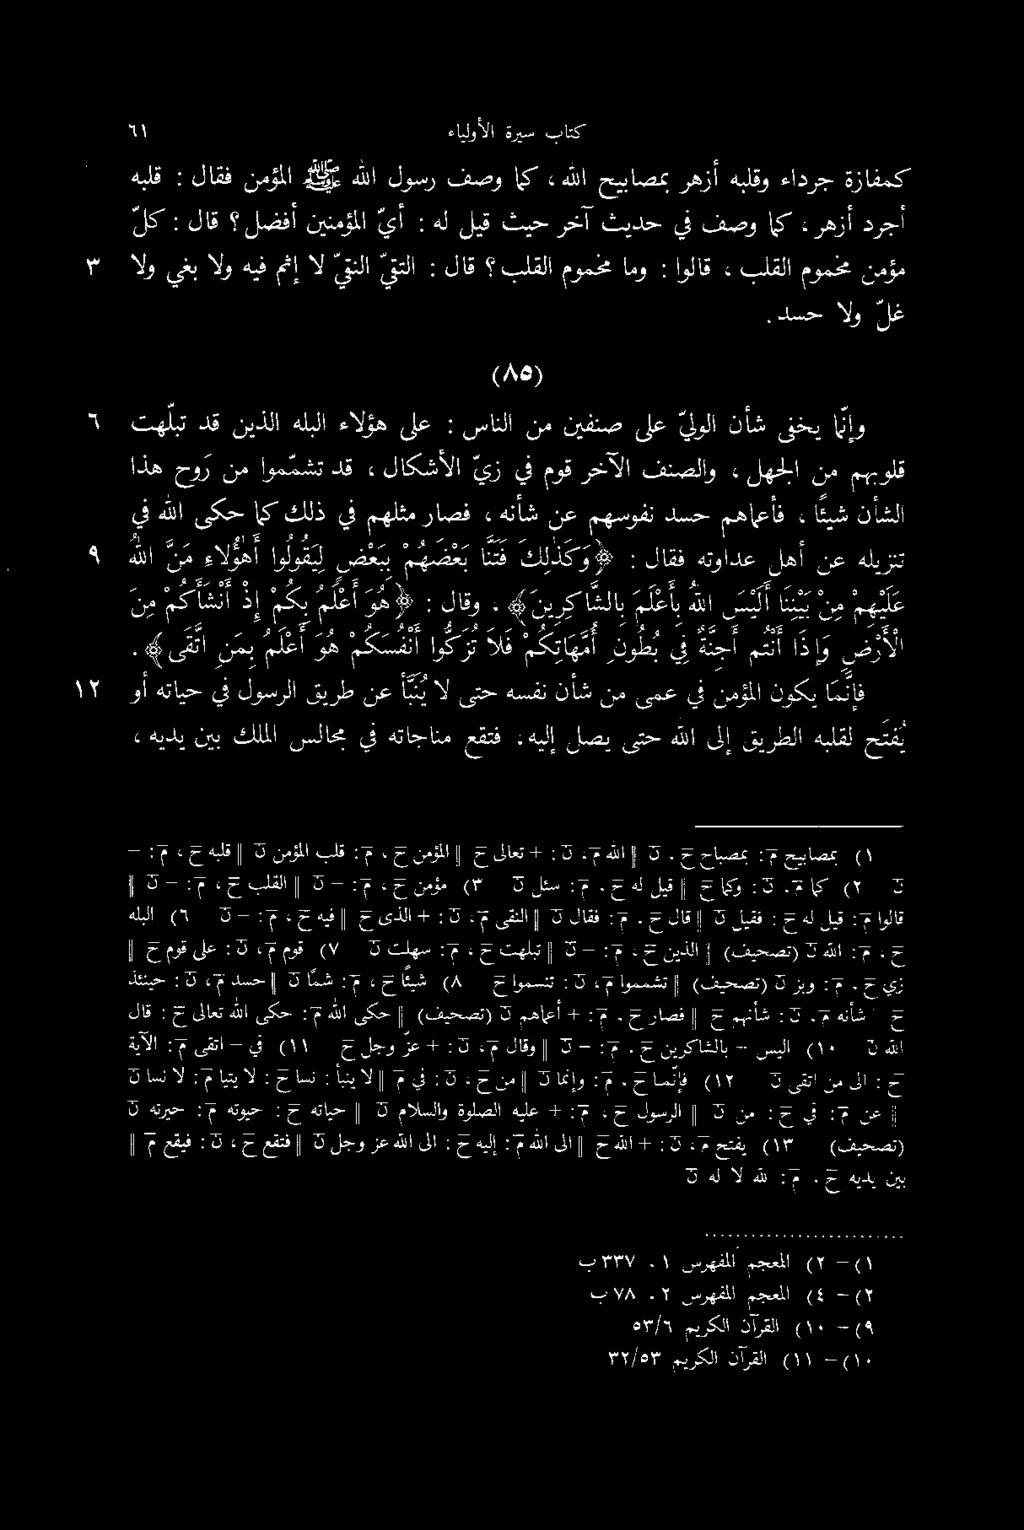 كتاب سيرة الأولياء ٦١
كمفازة جرداء وقلبه أزهر بمصابيح الله، كما وصف رسول الله ﷺ المؤمن فقال : قلبه
أجرد أزهر، كما وصف في حديث آخر حيث قيل له : أيّ المؤمنين أفضل؟ قال : كلّ
مؤمن مخموم القلب، قالوا : وما مخموم القلب؟ قال : التقيّ النقيّ لا إثم فيه ولا بغي ولا ٣
غلّ ولا حسد.
(٨٥)
وإنّما يخفى شأن الوليّ على صنفين من الناس : على هؤلاء البله الذين قد تبلّهت ٦
قلوبهم من الجهل، والصنف الآخر قوم في زيّ الأشكال، قد تشمّموا من رَوح هذا
الشأن شيئًا، فأعماهم حسد نفوسهم عن شأنه، فصار مثلهم في ذلك كما حكى الله في
تنزيله عن أهل عداوته فقال : ﴿وَكَذٰلِكَ فَتَنَّا بَعْضَهُمْ بِبَعْضٍ لِيَقُولُوا أَهٰؤُلَاءِ مَنَّ اللهُ ٩
عَلَيْهِمْ مِنْ بَيْنِنَا أَلَيْسَ اللهُ بِأَعْلَمَ بِالشَّاكِرِينَ﴾. وقال : ﴿هُوَ أَعْلَمُ بِكُمْ إِذْ أَنْشَأَكُمْ مِنَ
الْأَرْضِ وَإِذَا أَنْتُم أَجِنَّةٌ فِي بُطُونِ أُمَّهَاتِكُمْ فَلَا تُزَكُّوا أَنْفُسَكُمْ هُوَ أَعْلَمُ بِمَنِ اتَّقَى﴾.
فإنَّمَا يكون المؤمن في عمى من شأن نفسه حتى لا يُنَبَّأ عن طريق الرسول في حياته أو ١٢
يُفتَح لقلبه الطريق إلى الله حتى يصل إليه. فتقع مناجاته في مجالس الملك بين يديه،
١) بمصابيح م: بمصباح ح. ن ‖ الله م، ن: + تعالى ح ‖ المؤمن ح، م: قلب المؤمن ن ‖ قلبه ح، م: –
ن ٢) كما م. ن: وكما ح ‖ قيل له ح. م: سئل ن ٣) مؤمن ح، م: – ن ‖ القلب ح، م: – ن ‖
قالوا م: قيل له ح: فقيل ن ‖ قال ح. م: فقال ن ‖ النقى م، ن: + الذى ح ‖ فيه ح، م: – ن ٦) البله
ح، م: الله ن (تصحيف) ‖ الذين ح. م: – ن ‖ تبلهت ح، م: سهلت ن ٧) قوم م، ن: على قوم ح ‖
زي ح. م: وبز ن (تصحيف) ‖ تشمموا م، ن: تنسموا ح ٨) شيئًا ح، م: شمًا ن ‖ حسد م، ن: حينئذ
ح شأنه م. ن: شأنهم ح ‖ فصار ح. م: + أعماهم ن (تصحيف) ‖ حكى الله م: حكى الله تعالى ح: قال
الله ن ١٠) اليس – بالشاكرين ح. م: – ن ‖ وقال م، ن: + عزّ وجل ح ١١) في – اتقى م: الآية
ح: الى من اتقى ن ١٢) فإنّما ح. م: وإنما ن ‖ من ح، ن: في م ‖ لا ينبأ: لا نسا ح: لا يتبا م: لا نسا ن
‖ عن م: في ح: من ن ‖ الرسول ح، م: + عليه الصلوة والسلام ن ‖ حياته ح: حيوته م: حيرته ن
(تصحيف) ١٣) يفتح م، ن: + الله ح ‖ الى الله م: إليه ح: الى الله عز وجل ن ‖ فتقع ح، ن: فيقع م ‖
بين يديه ح. م: لله لا له ن
١) – ٢) المعجم المفهرس ١. ٣٣٧ ب
٢) – ٤) المعجم المفهرس ٢. ٧٨ ب
٩) – ١٠) القرآن الكريم ٥٣/٦
١٠) – ١١) القرآن الكريم ٣٢/٥٣